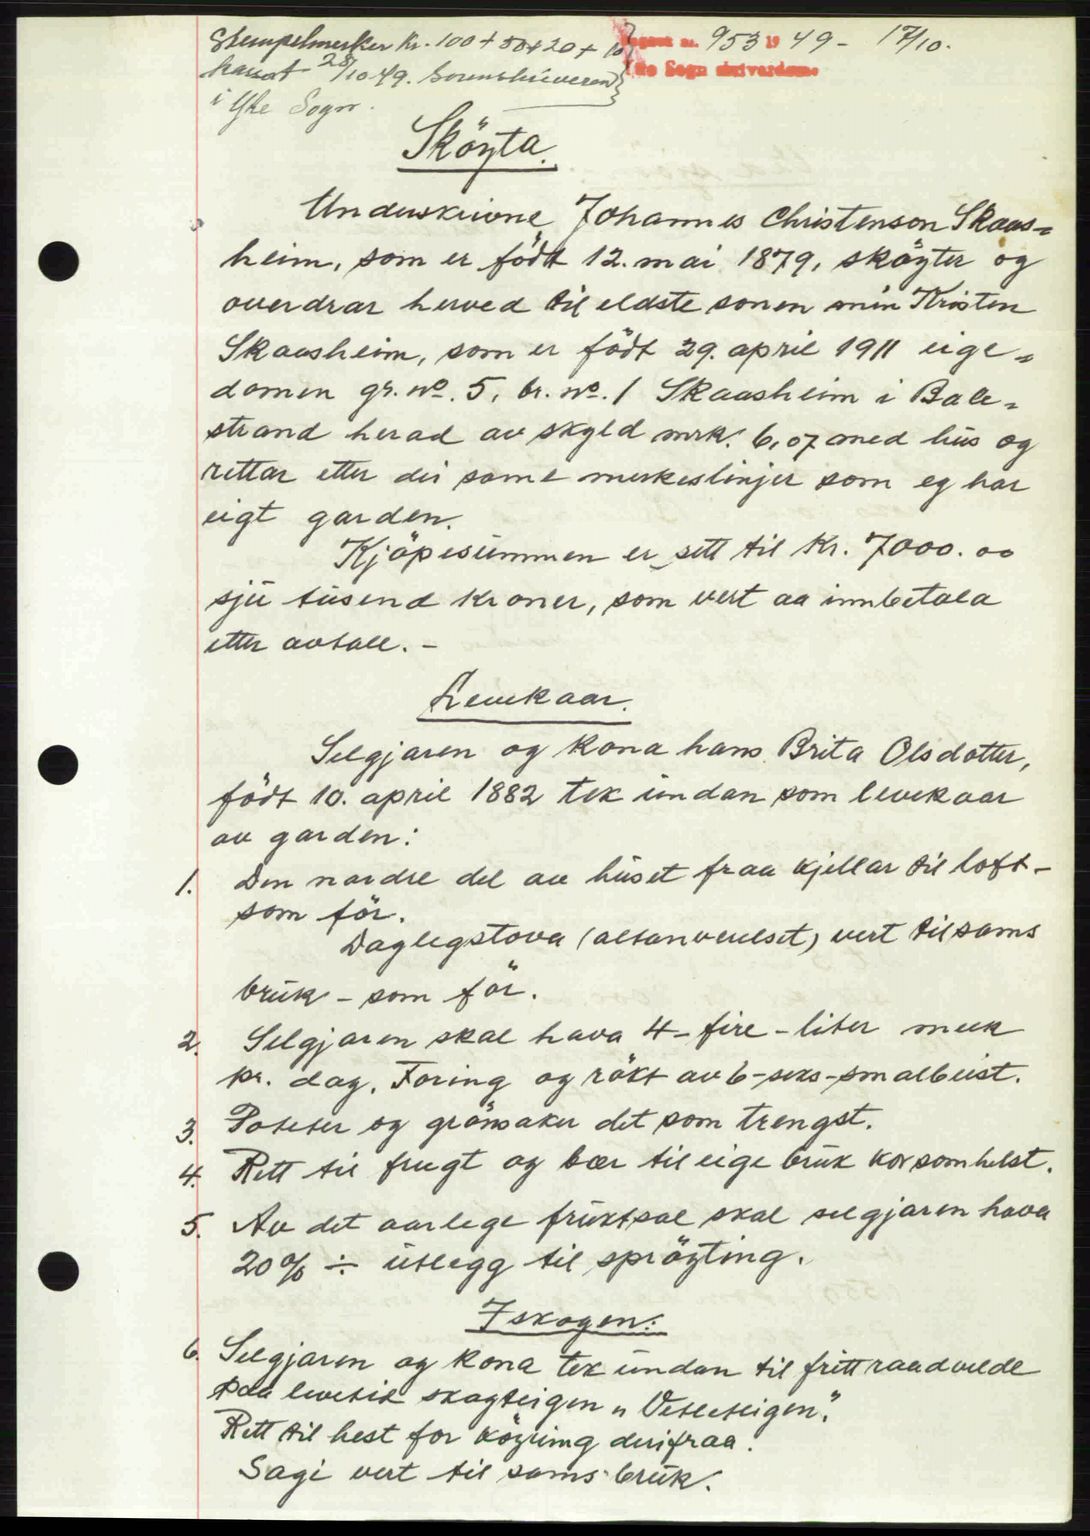 Stempelmerker kr. 100 + 50 + 20 + 10
kassert 28/10 49. Sorenskriveren
i Ytre Sogn.
nr. 953 1949 - 17/10.
Sogn skrivardøme
Sköyta.
Underskrivne Johannes Christenson Skaas=
heim, som er födt 12. mai 1879, sköyter og
overdrar herved til eldste sonen min Kristen
Skaasheim, som er födt 29. april 1911 eige=
domen gr. no. 5, br. no. 1 Skaasheim i Bale=
strand herad av skyld mrk. 6,07 med hus og
rettar etter dei same merkeslinjer som eg har
eigt garden.
Kjöpesummen er sett til Kr. 7000.00
sju tusend kroner, som vert aa innbetala
etter avtale. -
Levekaar.
Selgjaren og kona hans Brita Olsdotter,
födt 10. april 1882 tek undan som levekaar
av garden:
1. Den nordre del av huset fraa kjellar til loft -
som för.
Daglegstova (altanverelset) vert til sams
bruk - som för.
2. Selgjaren skal hava 4 - fire - liter melk
pr. dag. Foring og rökt av 6 - seks - smalbeist.
3. Poteter og grönsaker det som trengst.
4. Rett til frugt og bær til eige bruk kor som helst.
5. Av det aarlege fruktsal skal selgjaren hava
20 % ÷ utlegg til spröyting.
I skogen:
6. Selgjaren og kona tek undan til fritt raadvelde
paa levetid skogteigen "Vetleteigen".
Rett til hest for köyring derifraa.
Sagi vert til sams bruk.